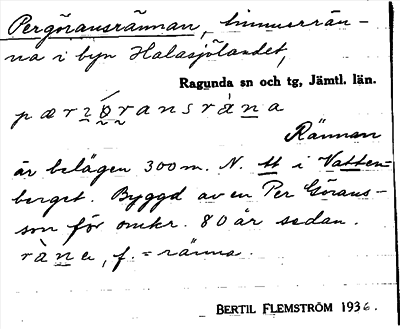 Pergöransrännan, timmerrän-
na i byn Halasjölandet,
Ragunda sn och tg, Jämtl. län.
Rännan
är belägen 300 m. N. tt i Vatten-
berget. Byggd av en Per Görans-
son för omkr. 80 år sedan.
ràna, f. = ränna.
BERTIL FLEMSTRÖM 1936.